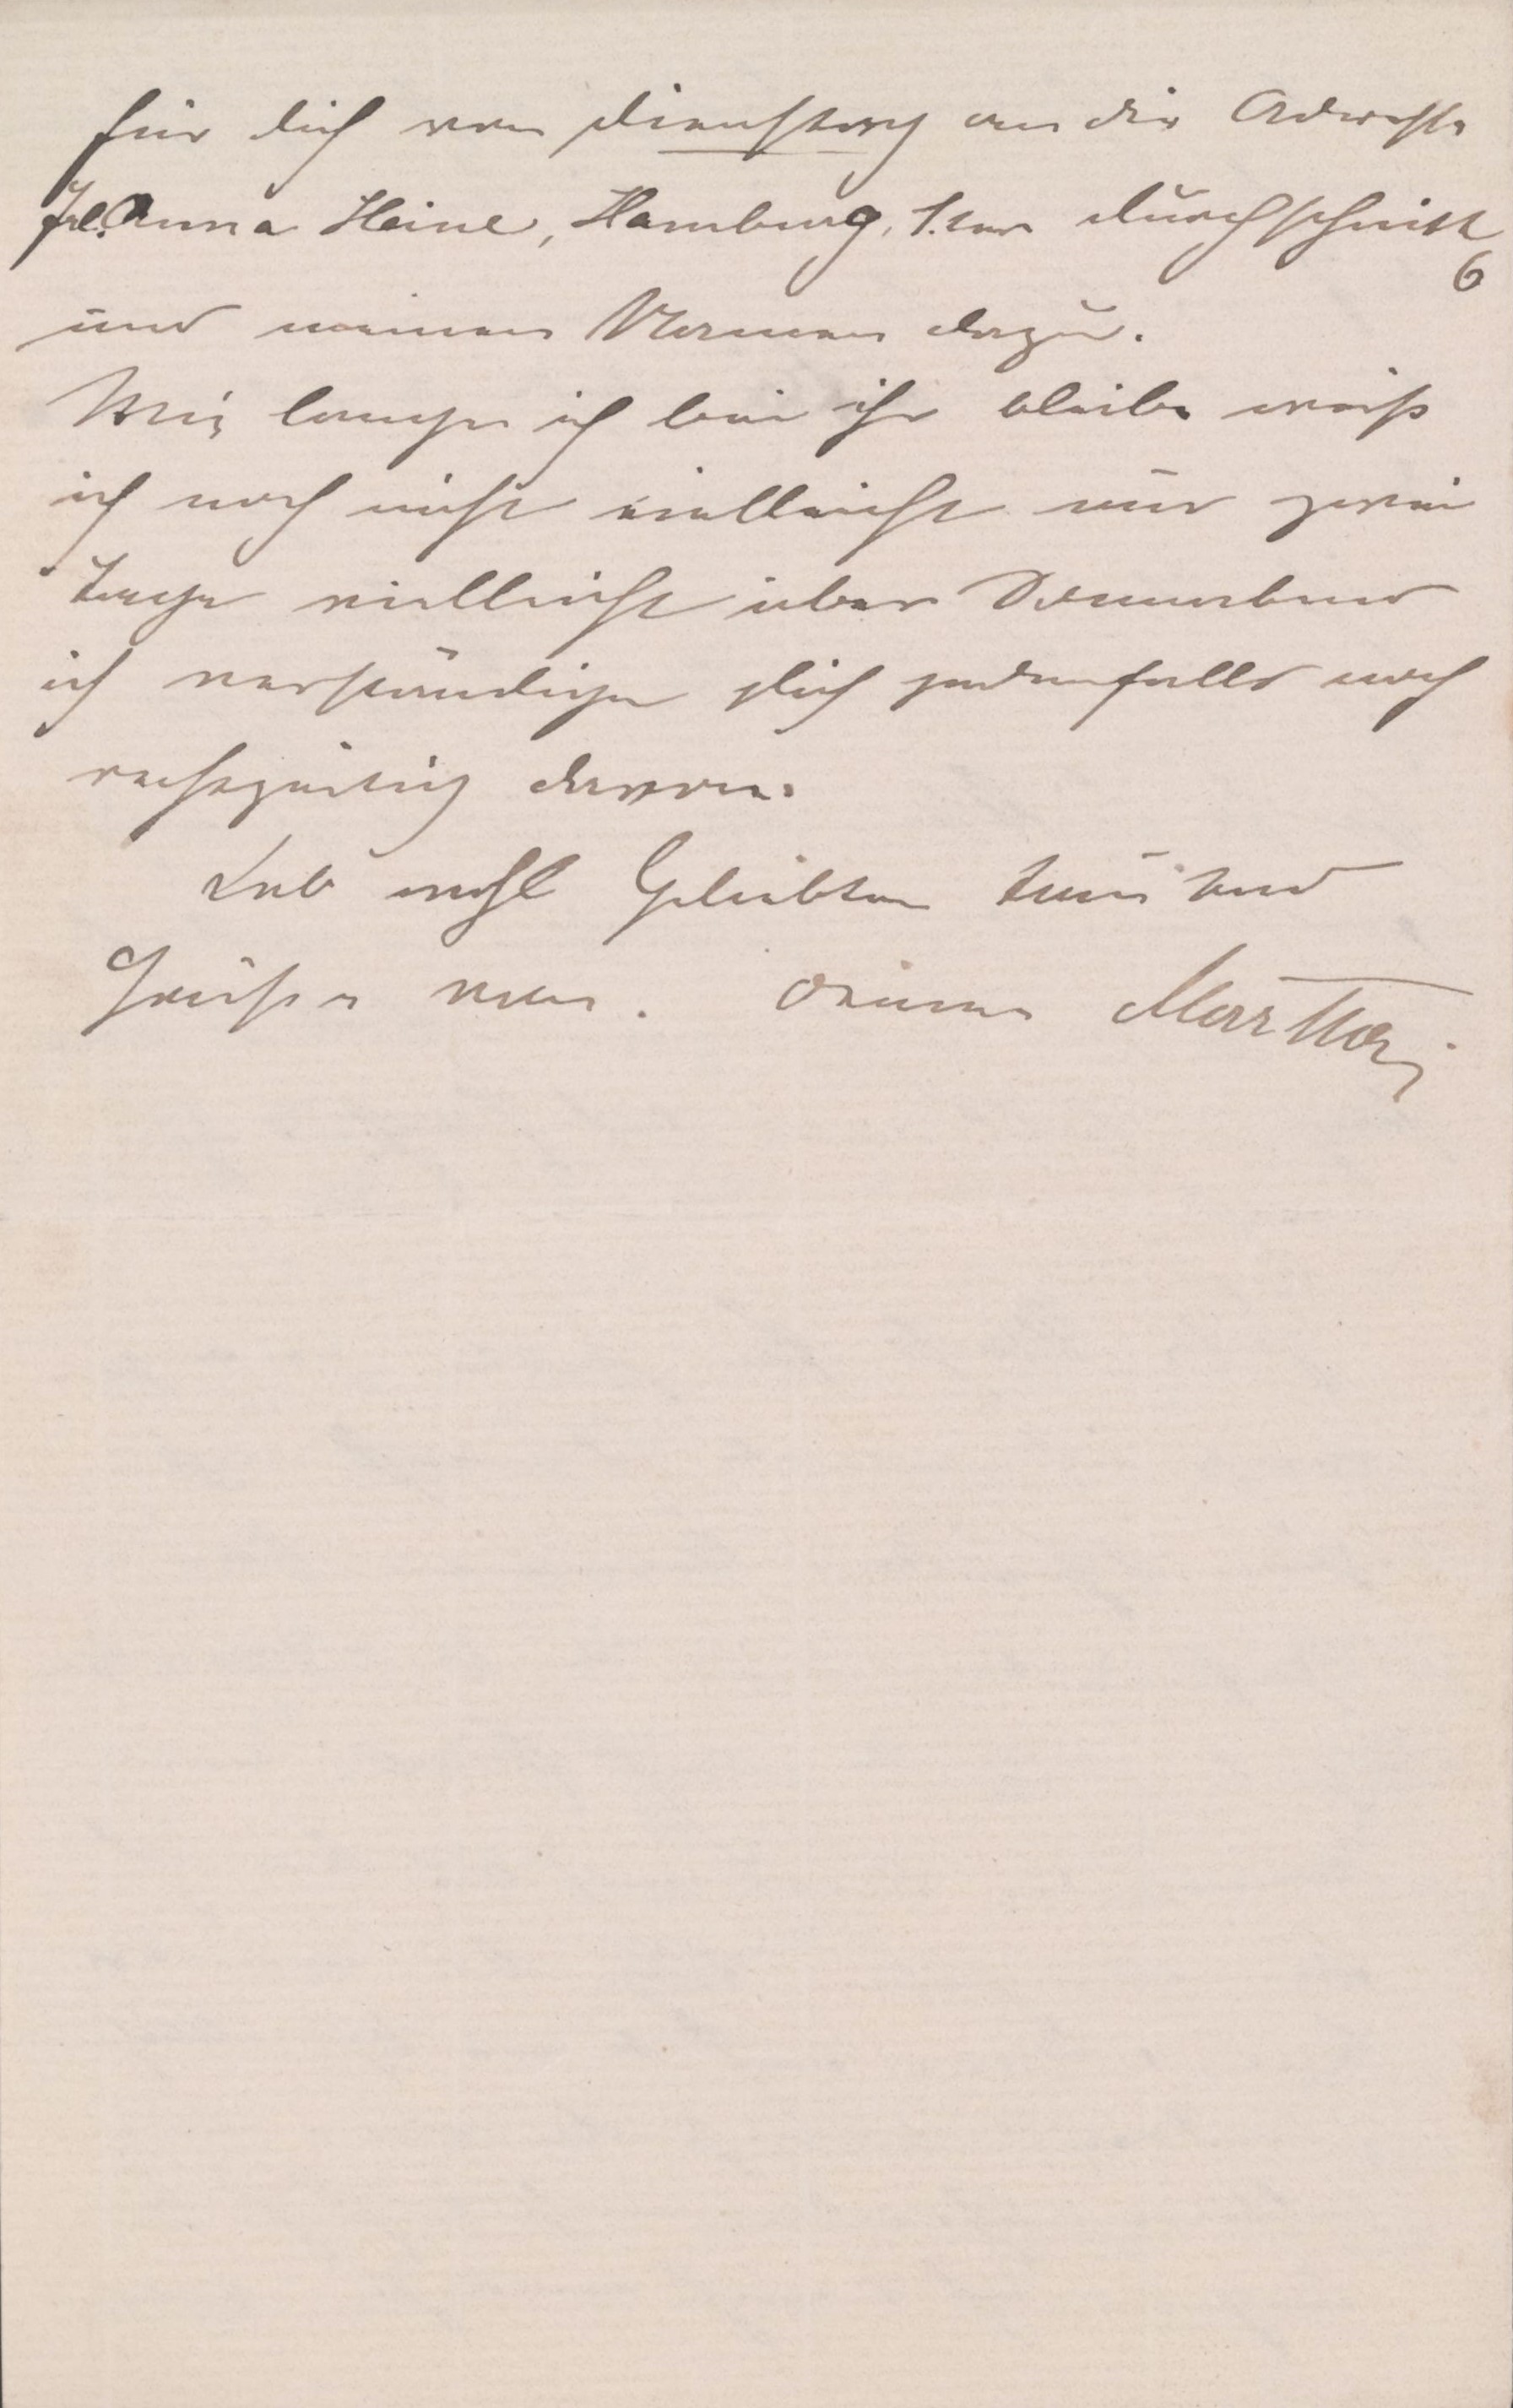 für dich von Dienstag an die Adresse
Frl. Anna Heine, Hamburg, 1. ter Durchschnitt
6
und meinen Namen dazu.
Wie lange ich bei ihr bleibe weiß
ich noch nicht vielleicht nur zwei
Tage vielleicht über Sonnabend
ich verständige dich jedenfalls noch
rechtzeitig davon.
Leb wohl Geliebter tausend
Grüße von. Deiner Martha